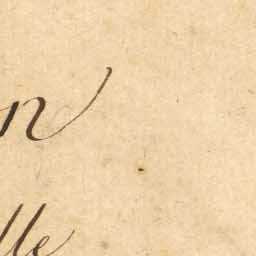 n
lle